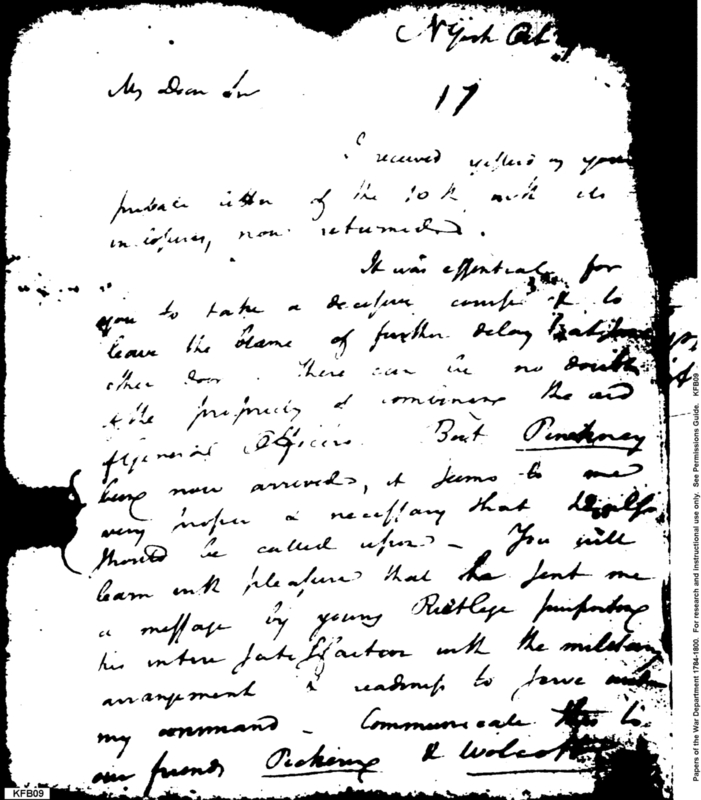 N York Oct
My Dear Sir
17
I received yesterday your
private letter of the 10th with its
inclosures, now returned.
It was essential for
you to take a decisive course & to
leave the blame of further delay
other door. There can be no doubt
of the propriety of combining the aid
of General Officers. But Pinckney
being now arrived, it seems to me
very proper & necessary that he also
should be called upon – You will
learn with pleasure that he sent me
a message by young Rutlege purporting
his intire satisfaction with the military
arrangement & readiness to serve under
my command – Communicate this to
our friends Pickering & Wolcott
KFB09
Papers of the War Department 1784-1800. For research and instructional use only. See Permissions Guide. KFB09